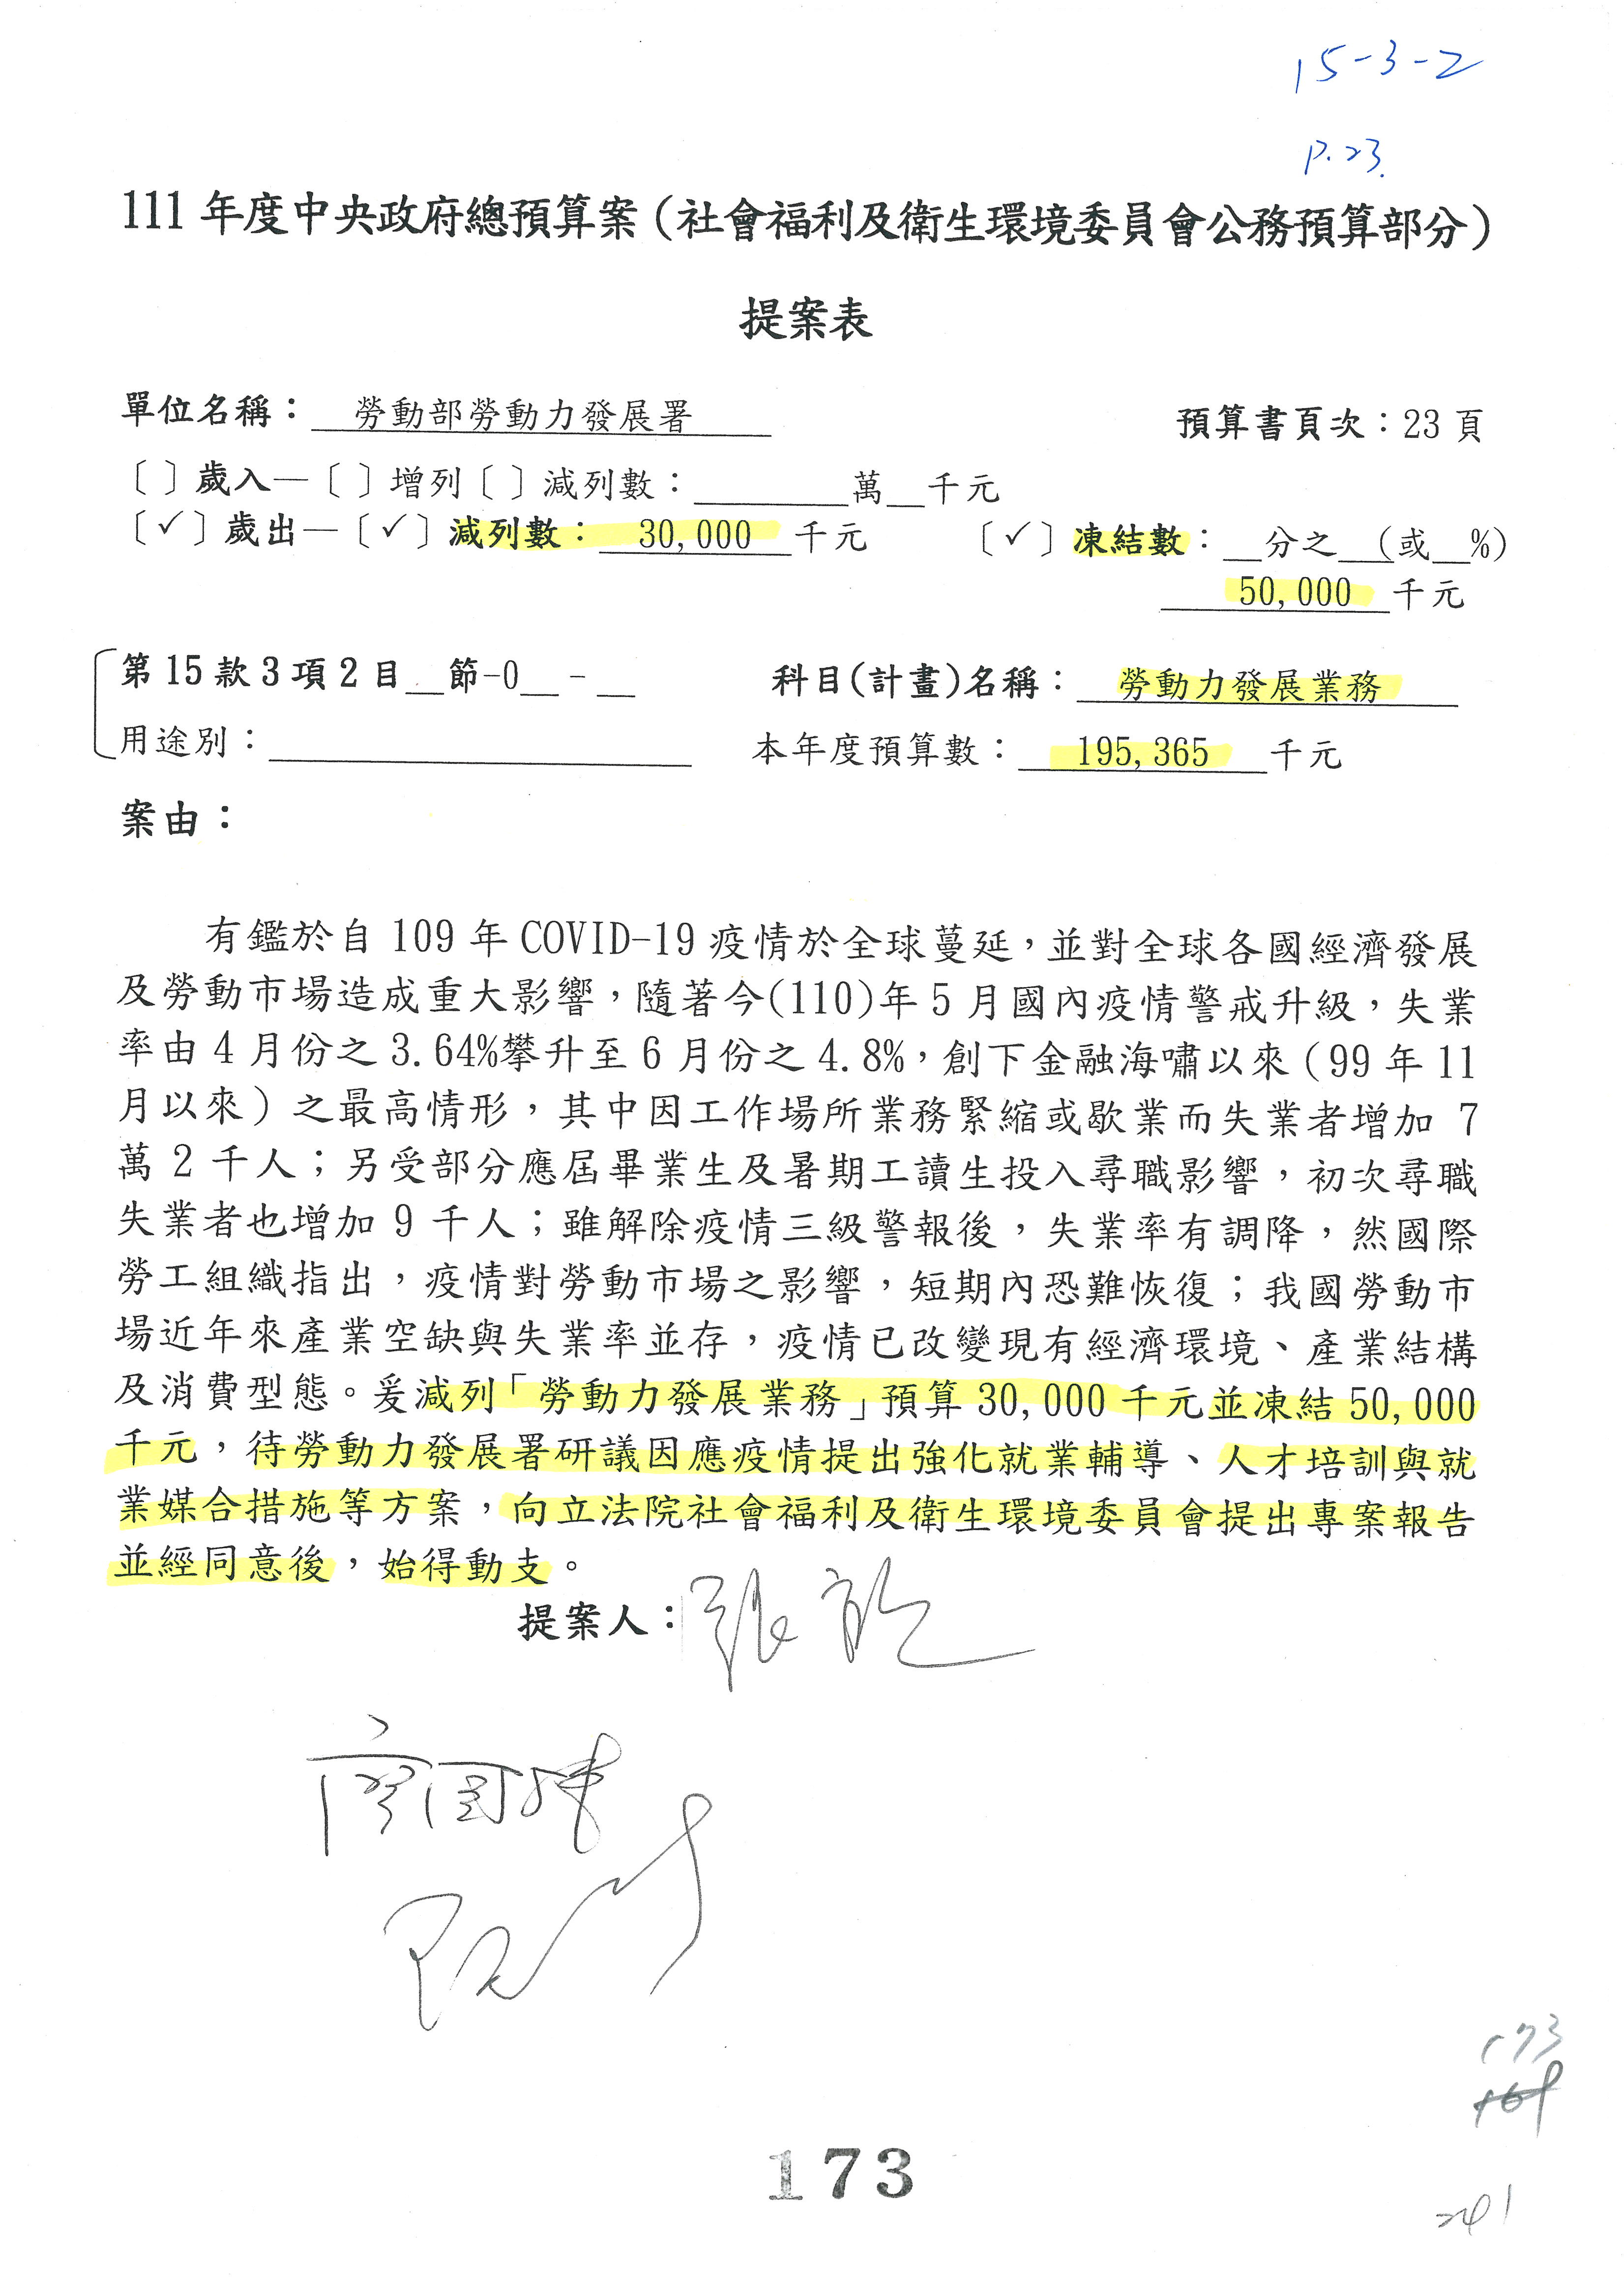 15-3-2
P.23.
111 年度中央政府總預算案（社會福利及衛生環境委員會公務預算部分）
提案表
單位名稱：　勞動部勞動力發展署
預算書頁次：23 頁
〔 〕歲入—〔 〕增列〔 〕減列數：________萬__千元
〔✓〕歲出—〔✓〕減列數：　30,000　千元　〔✓〕凍結數：__分之__（或__%）
50,000 千元
第 15 款 3 項 2 目__節-0__-__　科目(計畫)名稱：　勞動力發展業務
用途別：____________　本年度預算數：　195,365　千元
案由：
有鑑於自 109 年 COVID-19 疫情於全球蔓延，並對全球各國經濟發展
及勞動市場造成重大影響，隨著今(110)年 5 月國內疫情警戒升級，失業
率由 4 月份之 3.64%攀升至 6 月份之 4.8%，創下金融海嘯以來（99 年 11
月以來）之最高情形，其中因工作場所業務緊縮或歇業而失業者增加 7
萬 2 千人；另受部分應屆畢業生及暑期工讀生投入尋職影響，初次尋職
失業者也增加 9 千人；雖解除疫情三級警報後，失業率有調降，然國際
勞工組織指出，疫情對勞動市場之影響，短期內恐難恢復；我國勞動市
場近年來產業空缺與失業率並存，疫情已改變現有經濟環境、產業結構
及消費型態。爰減列「勞動力發展業務」預算 30,000 千元並凍結 50,000
千元，待勞動力發展署研議因應疫情提出強化就業輔導、人才培訓與就
業媒合措施等方案，向立法院社會福利及衛生環境委員會提出專案報告
並經同意後，始得動支。
提案人：
廖國棟
173
169
173
241